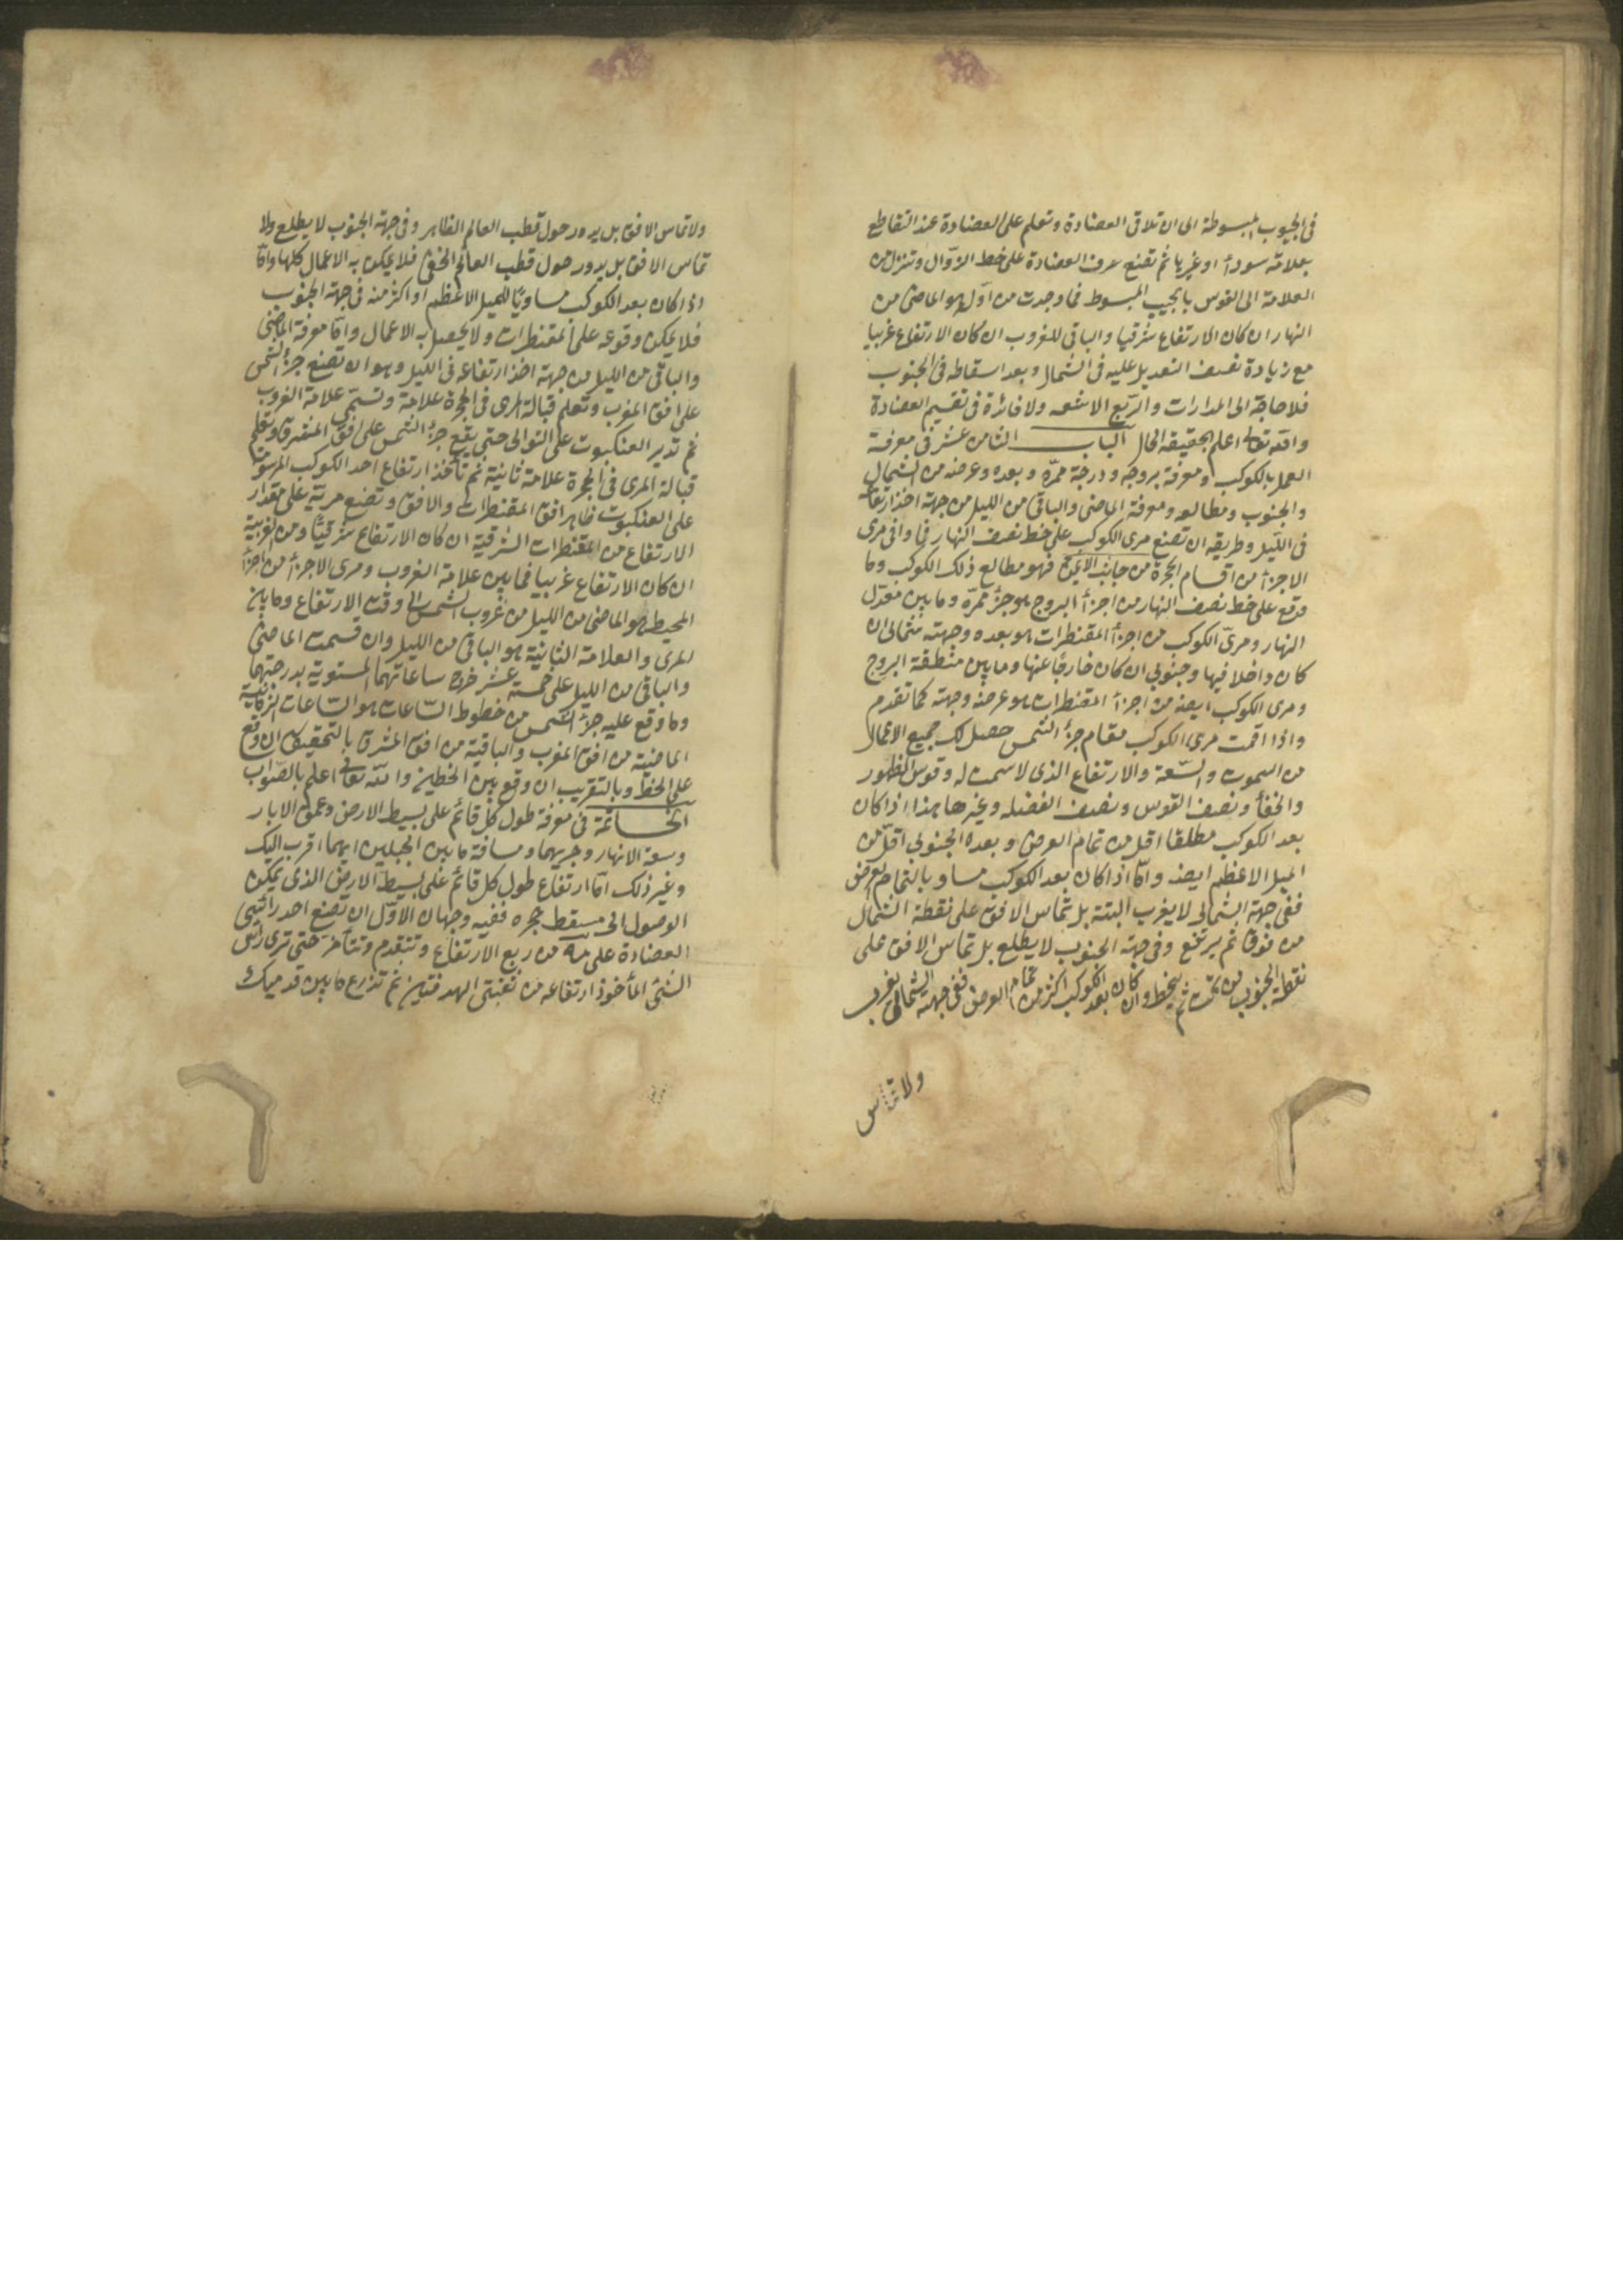 فى الجيوب المبسوطة الى ان تلاقى العضادة وتعلم على العضادة عند التقاطع
بعلامة سودأ او غيرها ثم تضع حرف العضادة على خط الزوال وتنزل من
العلامة الى القوس بالجيب المبسوط فما وجدت من اوله هو الماضى من
النهار ان كان الارتفاع شرقيا والباقى للغروب ان كان الارتفاع غربيا
مع زيادة نصف التعديل عليه فى الشمال وبعد اسقاطه فى الجنوب
فلا حاجة الى المدارات والربع الاشعه ولا فائدة فى تقسيم العضادة
والله تعالى اعلم بحقيقه الحال الباب الثامن عشر فى معرفة
العمل بالكوكب ومعرفة بروجه ودرجة ممرّه وبعده وعرضه من الشمال
والجنوب ومطالعه ومعرفة الماضى والباقى من الليل من جهة اخذ ارتفاعه
فى الليل وطريقه ان تضع مرى الكوكب على خط نصف النهار فما وافى مرى
الاجزأ من اقسام الحجرة من جانب الايمن فهو مطالع ذلك الكوكب وما
وقع على خط نصف النهار من اجزأ البروج هو جزء ممرّه وما بين معدّل
النهار ومرىّ الكوكب من اجزأ المقنطرات هو بعده وجهته شمالى ان
كان داخلا فيها وجنوبى ان كان خارجًا عنها وما بين منطقة البروج
ومرى الكوكب ايضه من اجزأ المقنطرات هو عرضه وجهته كما تقدم
واذا اقمت مرى الكوكب مقام جزء الشمس حصل لك جميع الاعمال
من السموت والسّعة والارتفاع الذى لا سمت له وقوس الظهور
والخفأ ونصف القوس ونصف الفضله وغيرها هذا اذا كان
بعد الكوكب مطلقا اقل من تمام العرض وبعده الجنوبى اقلّ من
الميل الاعظم ايضه وامّا اذا كان بعد الكوكب مساويا لتمام العرض
ففى جهة الشمالى لا يغرب البتة بل تماس الافق على نقطة الشمال
من فوق ثم يرتفع وفى جهة الجنوب لا يطلع بل تماس الافق على
نقطة الجنوب من تحت ثم ينحط وان كان بعد الكوكب اكثر من تمام العرض ففى جهة الشمالى لا يغرب
ولا تماس
ولا تماس الافق بل يدور حول قطب العالم الظاهر وفى جهة الجنوب لا يطلع ولا
تماس الافق بل يدور حول قطب العالم الخفىّ فلا يمكن به الاعمال كلها وامّا
اذا كان بعد الكوكب مساويًا للميل الاعظم او اكثر منه فى جهة الجنوب
فلا يمكن وقوعه على المقنطرات ولا يحصل به الاعمال وامّا معرفة الماضى
والباقى من الليل من جهة اخذ ارتفاعه فى الليل وهو ان تضع جزء الشمس
على افق المغرب وتعلم قبالة المرى فى الحجرة علامة وتسمّى علامة الغروب
ثم تدير العنكبوت على التوالى حتى يقع جزء الشمس على افق المشرق وتعلم
قبالة المرى فى الحجرة علامة ثانية ثم تأخذ ارتفاع احد الكوكب المرسومة
على العنكبوت ظاهر افق المقنطرات والافق وتضع مريّه على مقدار
الارتفاع من المقنطرات الشرقية ان كان الارتفاع شرقيًّا ومن الغربية
ان كان الارتفاع غربيا فما بين علامة الغروب ومرى الاجزأ من اجزأ
المحيط هو الماضى من الليل من غروب الشمس الى وقت الارتفاع وما بين
المرى والعلامة الثانية هو الباقى من الليل وان قسمت الماضى
والباقى من الليل على خمسة عشر خرج ساعاتهما المستوية بدرجتهما
وما وقع عليه جزء الشمس من خطوط السّاعات هو السّاعات الزمانية
الماضية من افق المغرب والباقية من افق المشرق بالتحقيق ان وقع
على الخطّ وبالتقريب ان وقع بين الخطين والله تعالى اعلم بالصّواب
الخاتمة فى معرفة طول كل قائم على بسيط الارض وعمق الابار
وسعة الانهار وجريها ومسافة ما بين الجبلين ايهما اقرب اليك
وغير ذلك امّا ارتفاع طول كل قائم على بسيطة الارض الذى يمكن
الوصول الى مسقط حجره ففيه وجهان الاوّل ان تضع احد رأسى
العضادة على مه من ربع الارتفاع وتتقدم وتتأخر حتى ترى رأس
الشئ المأخوذ ارتفاعه من ثقبتى الهدفتين ثم تذرع ما بين قدميك